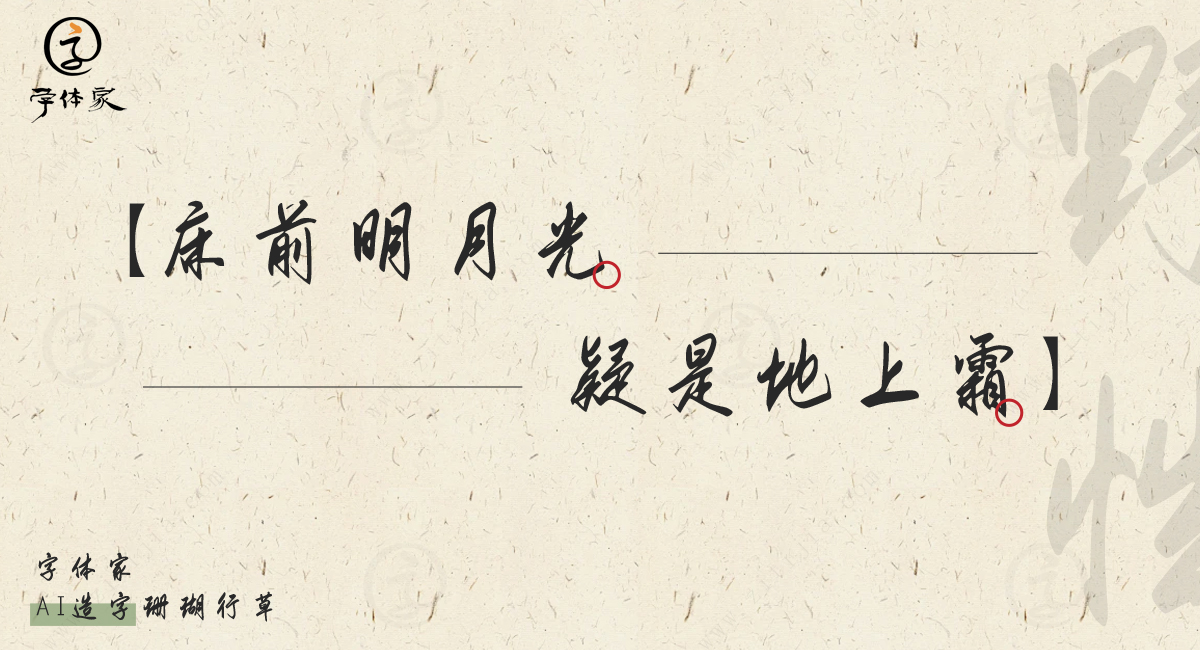 字体家
【床前明月光。
疑是地上霜。】
野
性
字体家
AI造字珊瑚行草